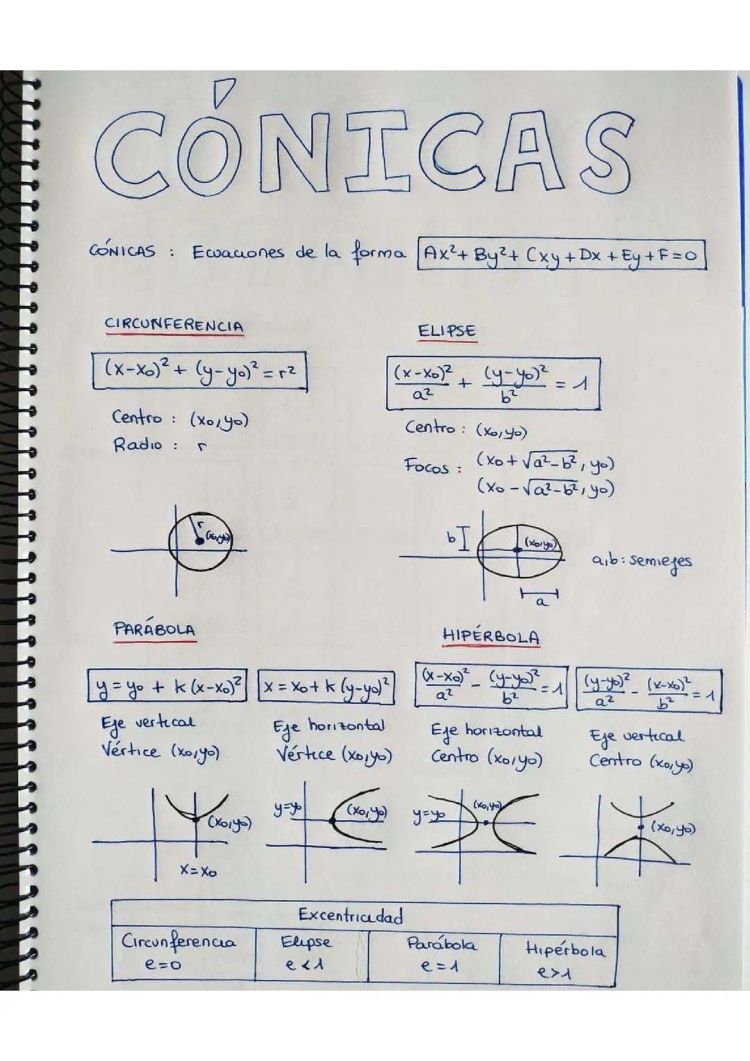 CÓNICAS
CÓNICAS : Ecuaciones de la forma Ax²+By²+Cxy+Dx+Ey+F=0
CIRCUNFERENCIA
(x-x₀)²+(y-y₀)²=r²
Centro : (x₀,y₀)
Radio : r
r
(x₀,y₀)
ELIPSE
(x-x₀)²/a² + (y-y₀)²/b² = 1
Centro : (x₀,y₀)
Focos : (x₀+√a²-b², y₀)
(x₀-√a²-b², y₀)
b
(x₀,y₀)
a
a,b: semiejes
PARÁBOLA
y=y₀ + k(x-x₀)²
Eje vertical
Vértice (x₀,y₀)
(x₀,y₀)
x=x₀
x=x₀+k(y-y₀)²
Eje horizontal
Vértice (x₀,y₀)
y=y₀
(x₀,y₀)
HIPÉRBOLA
(x-x₀)²/a² - (y-y₀)²/b² = 1
Eje horizontal
Centro (x₀,y₀)
y=y₀
(x₀,y₀)
(y-y₀)²/a² - (x-x₀)²/b² = 1
Eje vertical
Centro (x₀,y₀)
(x₀,y₀)
Excentricidad
Circunferencia Elipse Parábola Hipérbola
e=0 e<1 e=1 e>1